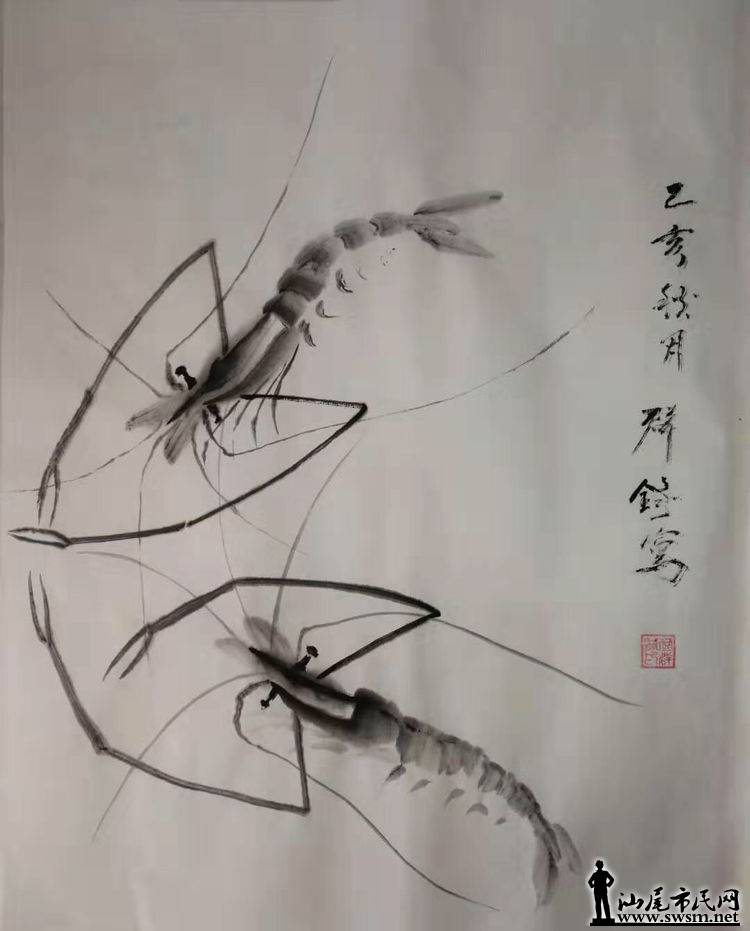 己亥秋月
群錦寫
汕尾市民网
www.swsm.net